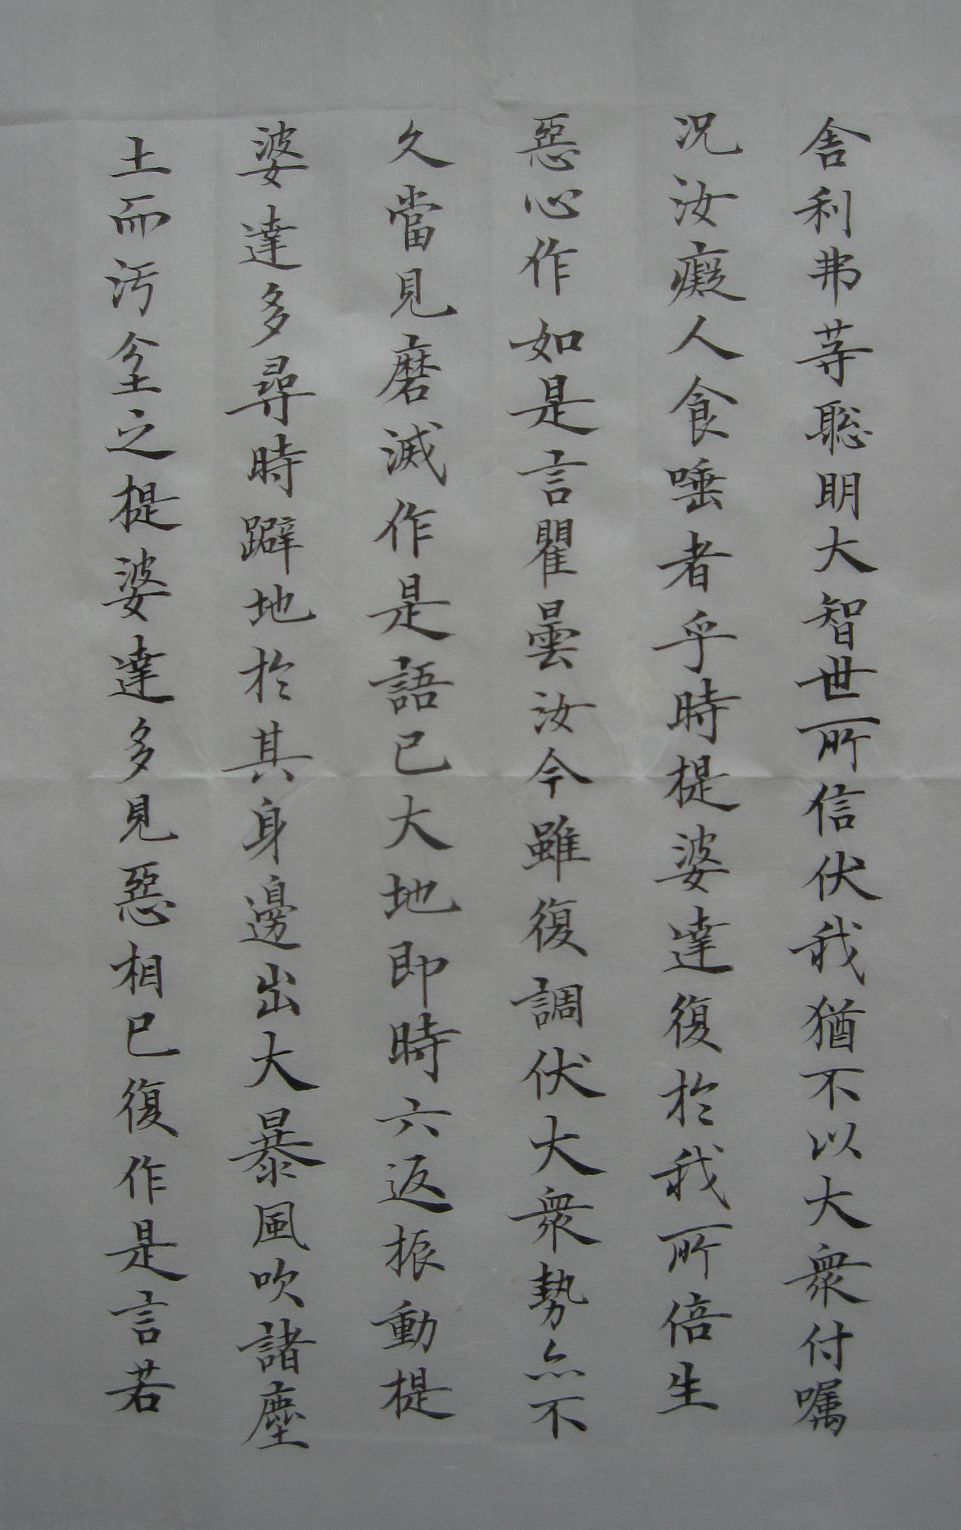 舎利弗䓁聡明大智世所信伏我猶不以大衆付嘱
况汝癡人食唾者乎時提婆達復於我所倍生
惡心作如是言瞿曇汝今雖復調伏大衆勢亦不
久當見磨滅作是語已大地即時六返振動提
婆達多尋時躃地於其身邊出大暴風吹諸塵
土而汚坌之提婆達多見惡相已復作是言若